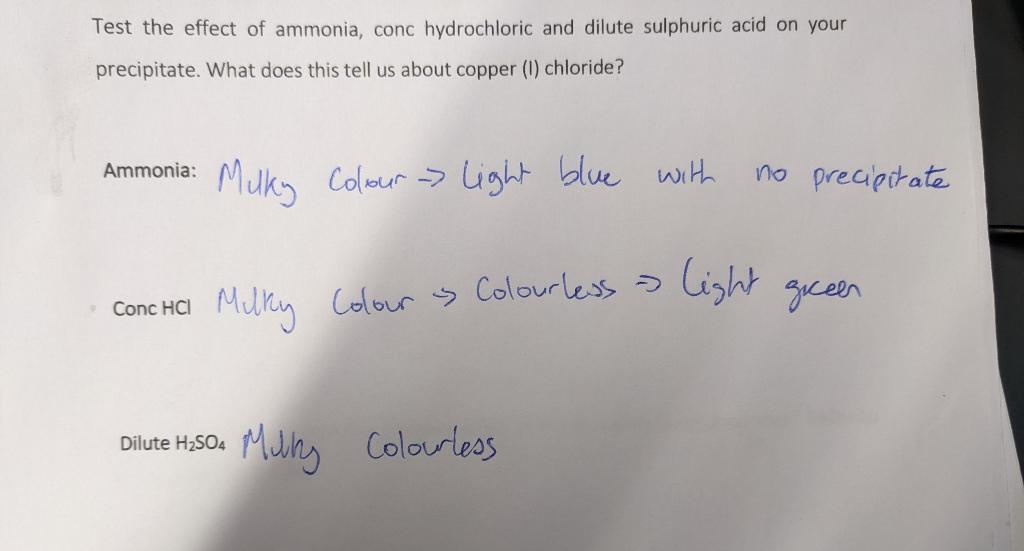 Test the effect of ammonia, conc hydrochloric and dilute sulphuric acid on your
precipitate. What does this tell us about copper (I) chloride?
Ammonia: Milky Colour → light blue with no precipitate
Conc HCl Milky Colour → Colourless → light green
Dilute H₂SO₄ Milky Colourless